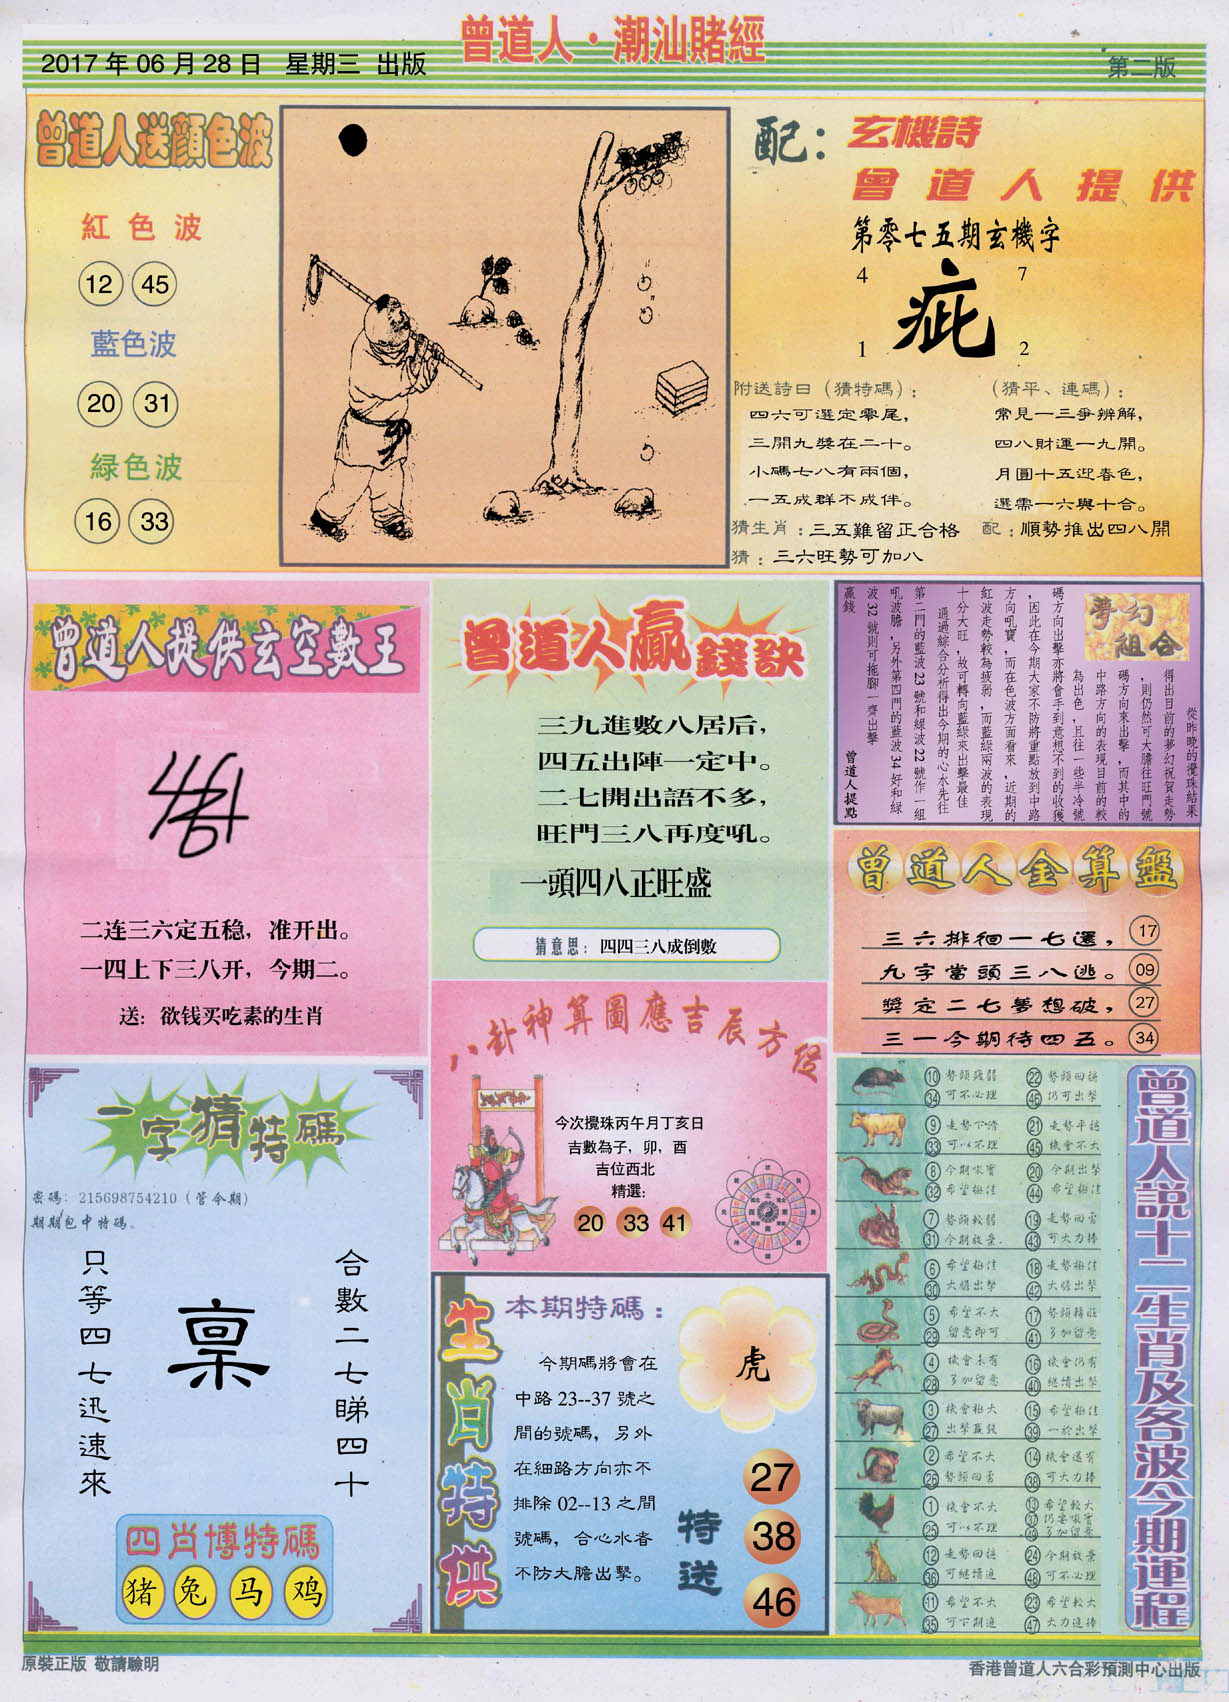 曾道人·潮汕賭經
2017年06月28日 星期三 出版
第二版
曾道人送顏色波
紅色波
12 45
藍色波
20 31
緑色波
16 33
配：玄機詩
曾道人提供
第零七五期玄機字
4 7
疵
1 2
附送詩曰（猜特碼）：
四六可選定零尾，
三開九獎在二十。
小碼七八有兩個，
一五成群不成伴。
（猜平、連碼）：
常見一三爭辨解，
四八財運一九開。
月圓十五迎春色，
選需一六與十合。
猜生肖：三五難留正合格
配：順勢推出四八開
猜：三六旺勢可加八
曾道人提供玄空數王
二连三六定五稳，准开出。
一四上下三八开，今期二。
送：欲钱买吃素的生肖
曾道人贏錢訣
三九進數八居后，
四五出陣一定中。
二七開出語不多，
旺門三八再度吼。
一頭四八正旺盛
猜意思：四四三八成倒數
夢幻組合
從昨晚的攪珠結果
得出目前的夢幻祝賀走勢
，則仍然可大膽往旺門號
碼方向來出擊，而其中的
中路方向的表現目前的較
為出色，且往一些半冷號
碼方向出擊亦將會手到意想不到的收獲
，因此在今期大家不防將重點放到中路
方向吼寶，而在色波方面看來，近期的
紅波走勢較為疲弱，而藍綠兩波的表現
十分大旺，故可轉向藍綠來出擊最佳
通過綜合分析得出今期的心水先往
第二門的藍波23號和綠波22號作一組
吼波膽，另外第四門的藍波34好和綠
波32號則可拖腳一齊出擊
贏錢
曾道人提點
曾道人金算盤
三六排徊一七選， 17
九字當頭三八逃。 09
獎定二七夢想破， 27
三一今期待四五。 34
八卦神算圖應吉辰方位
今次攪珠丙午月丁亥日
吉數為子，卯，酉
吉位西北
精選：
20 33 41
一字猜特碼
密碼：215698754210（管今期）
期期包中特碼。
合數二七睇四十
稟
只等四七迅速來
四肖博特碼
猪 兔 马 鸡
生肖特供
本期特碼：
今期碼將會在
中路23--37號之
間的號碼，另外
在細路方向亦不
排除02--13之間
號碼，合心水者
不防大膽出擊。
虎
特送
27
38
46
曾道人説十二生肖及各波今期運程
10 34 勢頭疲弱 可不必理
22 46 勢頭回擴 仍可出擊
9 33 走勢下滑 可以不理
21 45 走勢平穩 機會不大
8 32 今期吼寶 希望極佳
20 44 今期出擊 希望極佳
7 31 勢頭較弱 今期放棄
19 43 走勢回勇 可大力捧
6 30 希望極佳 大膽出擊
18 42 走勢極佳 大膽出擊
5 29 希望不大 留意即可
17 41 勢頭精旺 多加留意
4 28 機會未有 多加留意
16 40 機會仍有 繼續出擊
3 27 機會極大 出擊贏錢
15 39 希望極佳 一於出擊
2 26 希望不大 勢頭回勇
14 38 機會還有 可大力捧
1 25 機會不大 可以不理
13 37 49 希望較大 仍要吼寶 多加留意
12 36 走勢回穩 可繼續追
24 48 今期放棄 可不必理
11 35 希望不大 可下期追
23 47 希望較大 大力追捧
原裝正版 敬請驗明
香港曾道人六合彩預測中心出版